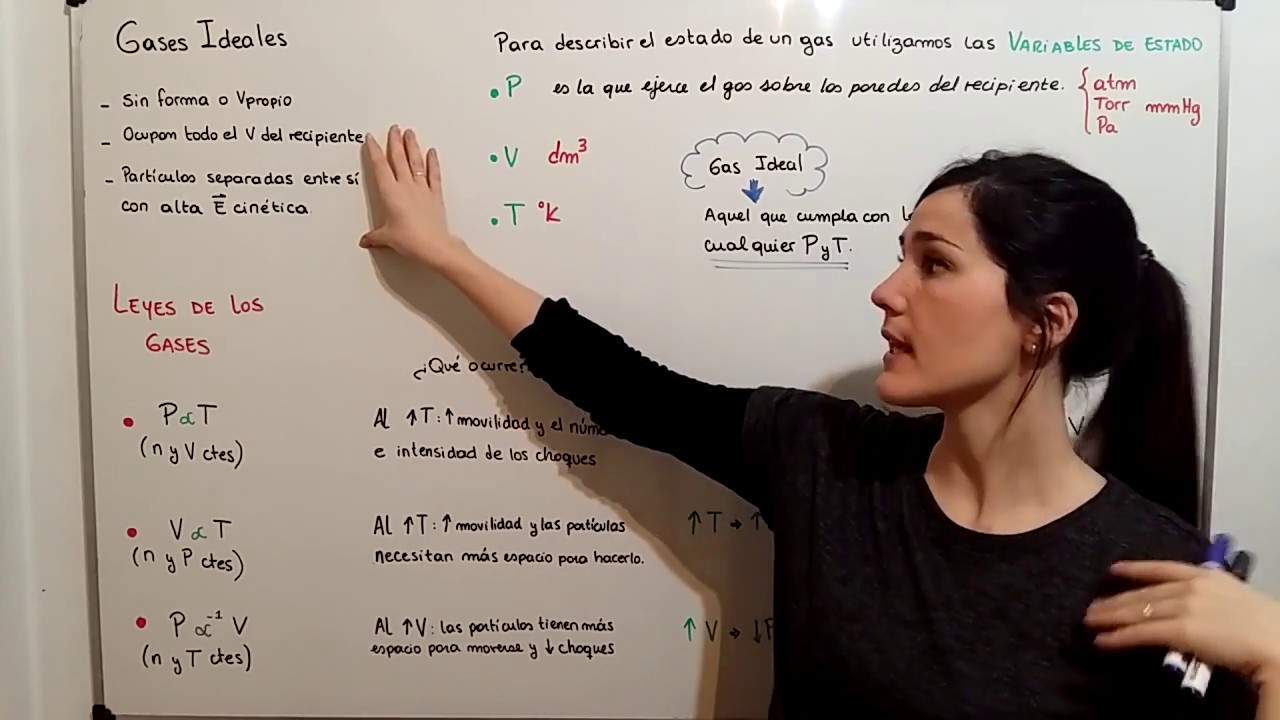 Gases Ideales
- Sin forma o Vpropio
- Ocupan todo el V del recipiente
- Partículas separadas entre sí
con alta E cinética.
Para describir el estado de un gas utilizamos las VARIABLES DE ESTADO
• P es la que ejerce el gas sobre las paredes del recipiente. { atm
Torr mmHg
Pa
• V dm³
• T °K
Gas Ideal
Aquel que cumpla con
cualquier P y T.
LEYES DE LOS
GASES
¿Qué ocurre?
• P ∝ T
(n y V ctes)
Al ↑T: ↑ movilidad y el
e intensidad de los choques
V
• V ∝ T
(n y P ctes)
Al ↑T: ↑ movilidad y las partículas
necesitan más espacio para hacerlo.
↑ T → ↑
• P ∝⁻¹ V
(n y T ctes)
Al ↑V: las partículas tienen más
espacio para moverse y ↓ choques
↑ V → ↓P